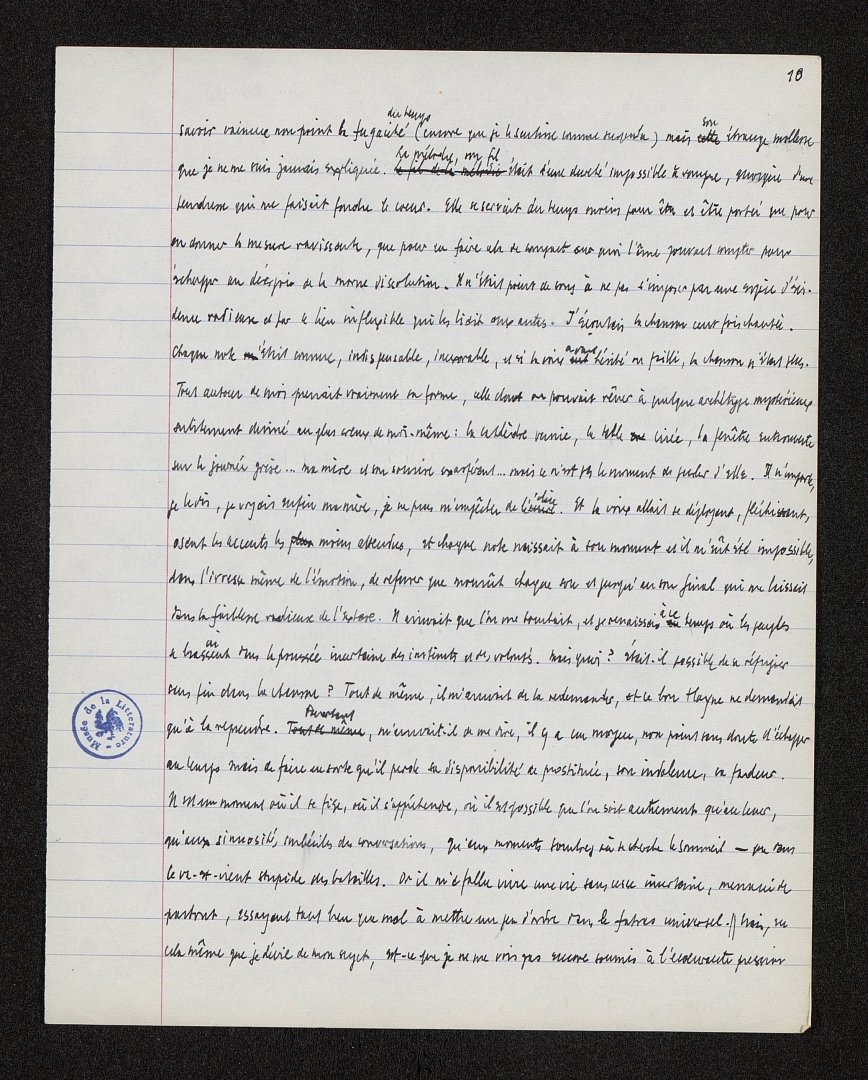 10
du temps
savoir vaincre non point la fugacité (encore que je la sentisse comme suspendue) mais cette son étrange mollesse
que je ne me suis jamais expliquée. le fil de la mélodie la mélodie, son fil était d'une dureté impossible à rompre, quoique d'une
tendresse qui me faisait fondre le cœur. Elle se servait du temps moins pour être et être portée que pour
en donner la mesure ravissante, que pour en faire de compact sur quoi l'âme pouvait compter pour
échapper au désespoir de la morne dissolution. Il n'était point de sons à ne pas s'imposer par une espèce d'évi-
dence radieuse et par le lien inflexible qui les liait aux autres. J'écoutais la chanson cent fois chantée.
Chaque note était comme, indispensable, inexorable, et si la voix avait hésité ou failli, la chanson n'était plus.
Tout autour de moi prenait vraiment sa forme, celle dont on pouvait rêver à quelque archétype mystérieux
subitement deviné au plus creux de moi-même : la cathèdre vernie, la table cirée, la fenêtre entrouverte
sur la journée grise... ma mère et son sourire exaspérant... mais ce n'est pas le moment de parler d'elle. Il n'importe,
je la vis, je voyais enfin ma mère, je ne puis m'empêcher de l'écrire. Et la voix allait se déployant, fléchissant,
osant les accents les plus moins attendus, et chaque note naissait à son moment et il m'eût été impossible,
dans l'ivresse même de l'émotion, de refuser que mourût chaque son et jusqu'au son final qui me laissait
dans la faiblesse radieuse de l'extase. Il arrivait que l'on me touchait, et je renaissais au à ce temps où les peuples
se dans la poussée incertaine des instincts et des volontés. Mais quoi ? Était-il possible de se réfugier
sans fin dans la chanson ? Tout de même, il m'arrivait de la redemander, et ce bon Hayne ne demandait
qu'à la reprendre. Tout de même Pourtant, m'arrivait-il de me dire, il y a un moyen, non point sans doute d'échapper
au temps mais de faire en sorte qu'il perde sa disponibilité de prostituée, son indolence, sa fadeur.
Il est un moment où il se fige, où il s'appesantit, où il est possible que l'on soit autrement qu'au leurre,
qu'aux sinuosités imbéciles des conversations, qu'aux moments sombres où se cherche le sommeil — que dans
le va-et-vient stupide des batailles. Or il m'a fallu vivre une vie sans cesse incertaine, menacée de
partout, essayant tant bien que mal à mettre un peu d'ordre dans le fatras universel. // Mais, en
cela même que je dévie de mon sujet, est-ce que je ne me vois pas encore soumis à l'écœurante pression
Musée de la Littérature